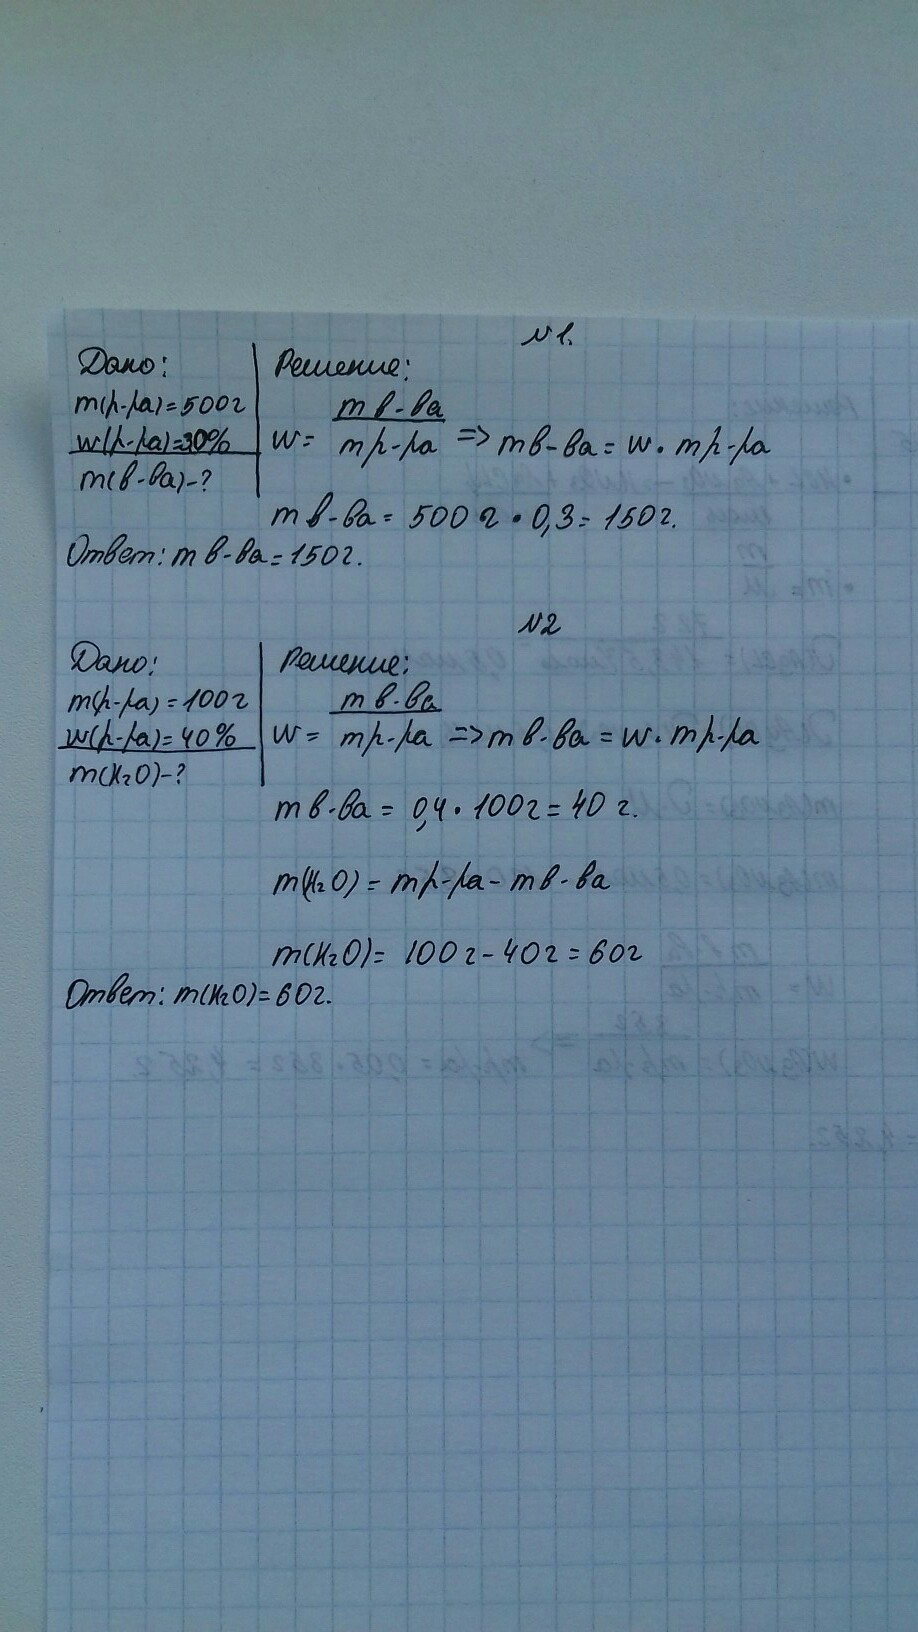 N1.
Дано:
Решение:
m(р-ра)=500г
w(р-ра)=30%
m(в-ва)-?
w= m в-ва / m р-ра => m в-ва = w · m р-ра
m в-ва = 500 г · 0,3 = 150г.
Ответ: m в-ва = 150г.
N2
Дано:
Решение:
m(р-ра) = 100г
w(р-ра)= 40%
m(H₂O)-?
w = m в-ва / m р-ра => m в-ва = w · m р-ра
m в-ва = 0,4 · 100г = 40 г.
m(H₂O) = m р-ра - m в-ва
m(H₂O)= 100г - 40г = 60г
Ответ: m(H₂O)= 60г.